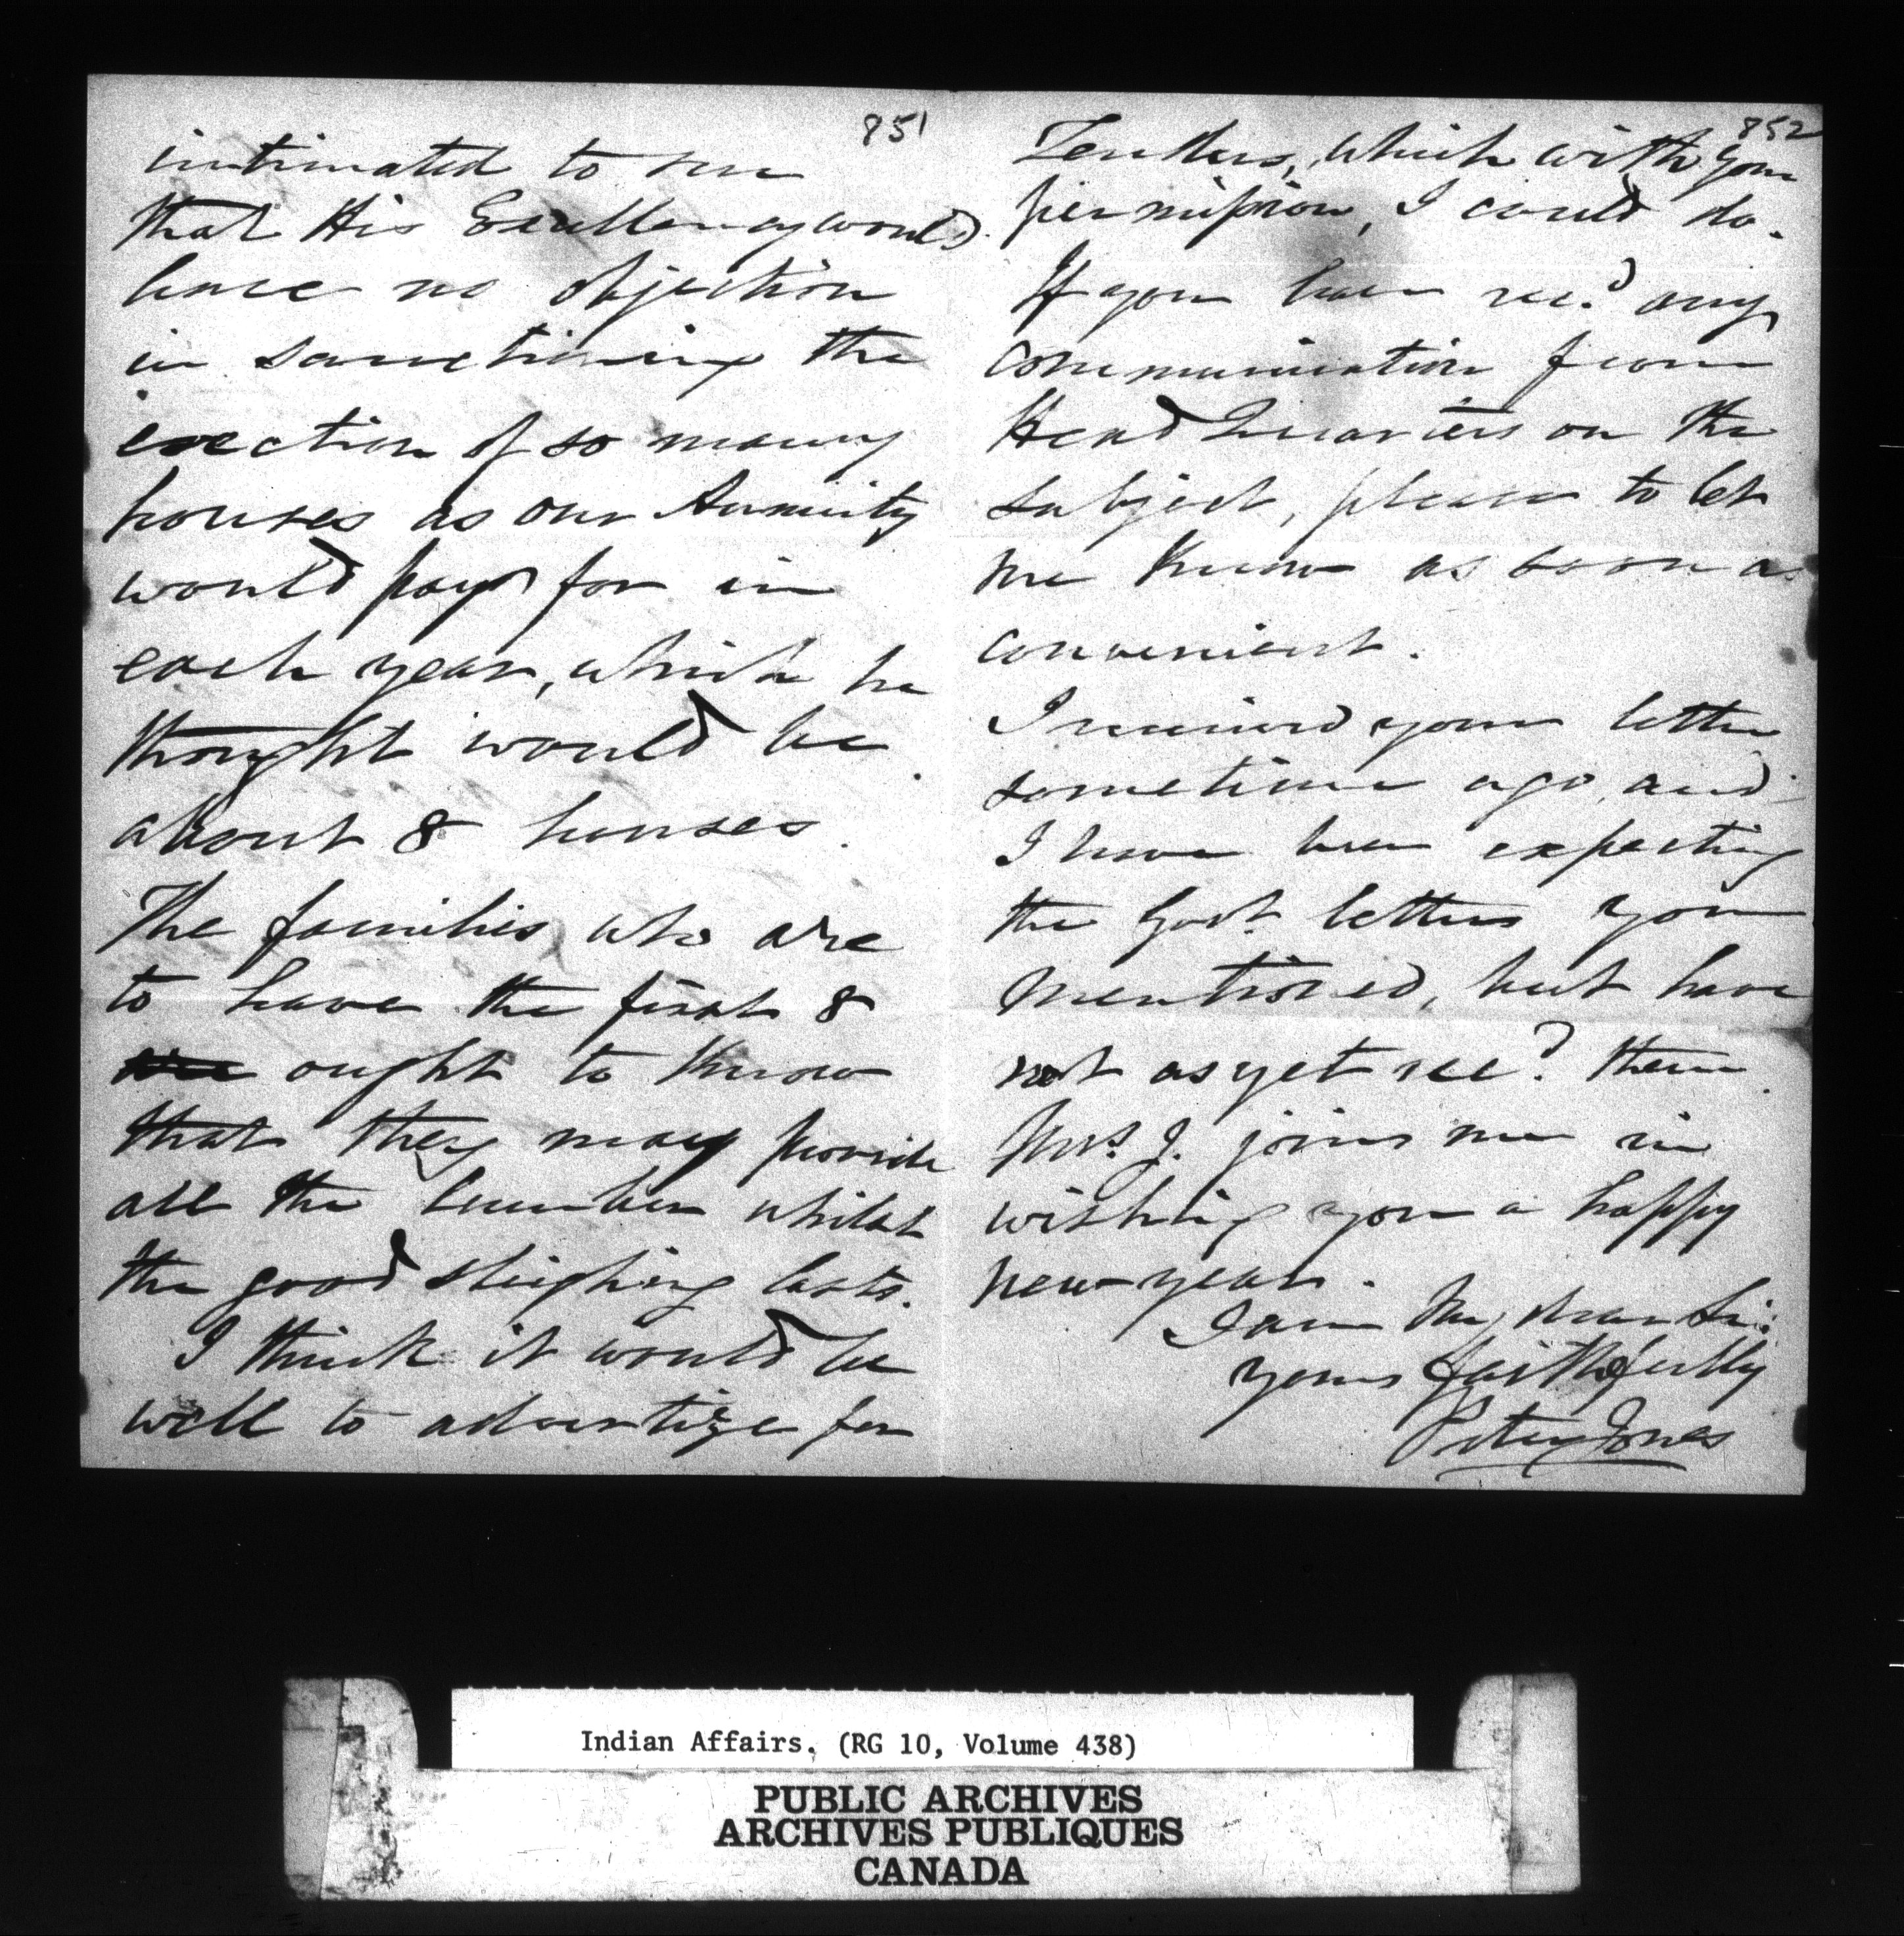 851
intimated to me
that His Excellency would
have no objection
in sanctioning the
erection of so many
houses as our Annuity
would pay for in
each year, which he
thought would be
about 8 houses.
The families who are
to have the first 8
ought to know
that they may provide
all the lumber whilst
the good sleighing lasts.
I think it would be
well to advertize for
852
Tenders, which with your
permission, I could do.
If you have recd. any
communication from
Head Quarters on the
subject, please to let
me know as soon as
convenient.
I received your letter
sometime ago, and
I have been expecting
the Govt. letters you
mentioned, but have
not as yet recd. them.
Mrs. J. joins me in
wishing you a happy
new year.
I am My dear Sir
yours faithfully
Peter Jones
Indian Affairs. (RG 10, Volume 438)
PUBLIC ARCHIVES
ARCHIVES PUBLIQUES
CANADA